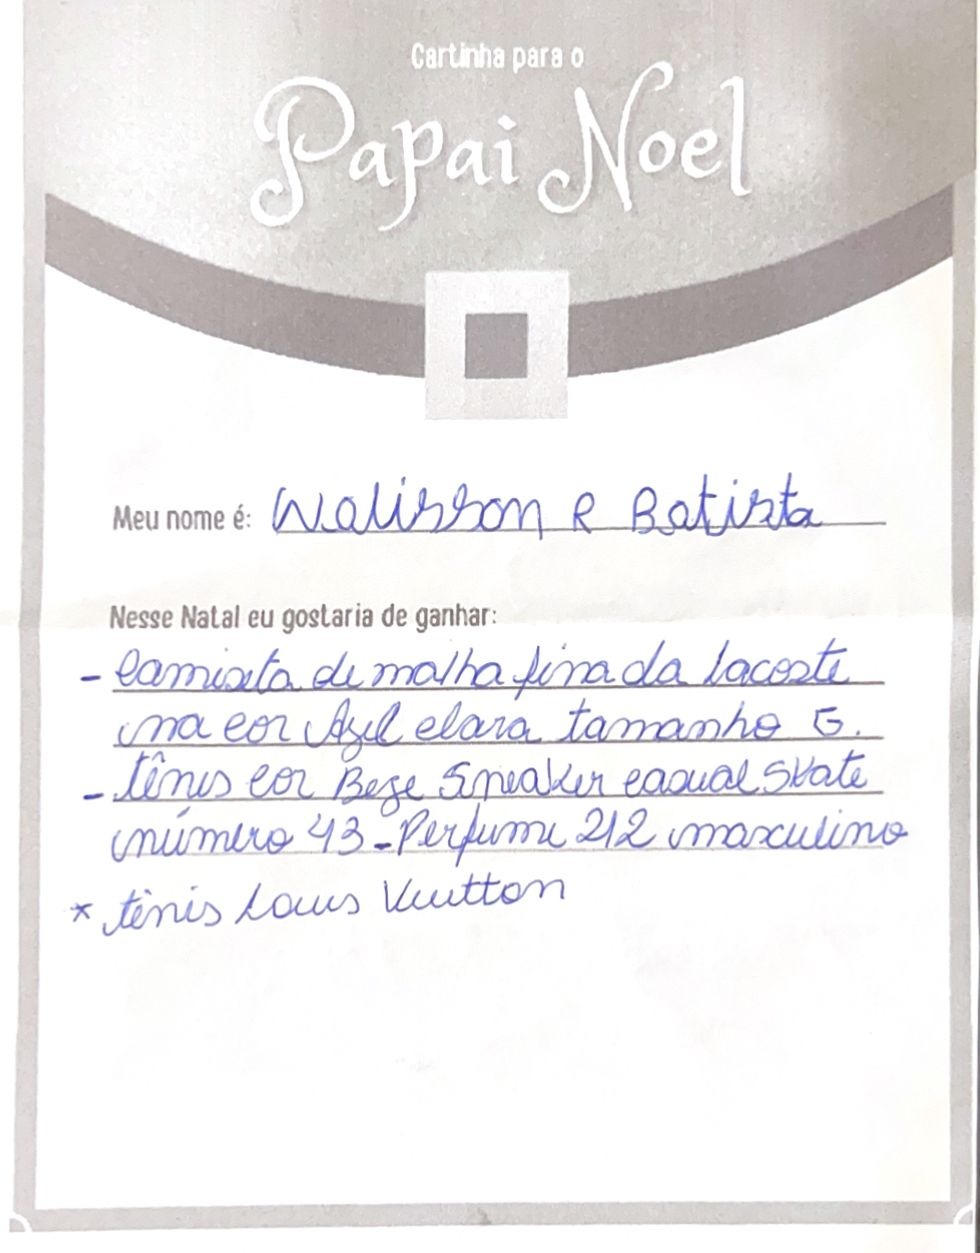 Cartinha para o
Papai Noel
Meu nome é: Walisson R Batista
Nesse Natal eu gostaria de ganhar:
- Camiseta de malha fina da Lacoste
na cor Azul clara tamanho G.
- tênis cor Bege Sneaker casual Skate
número 43 - Perfume 212 masculino
* tênis Louis Vuitton